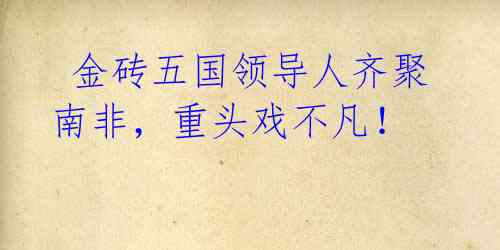 金砖五国领导人齐聚
南非，重头戏不凡！